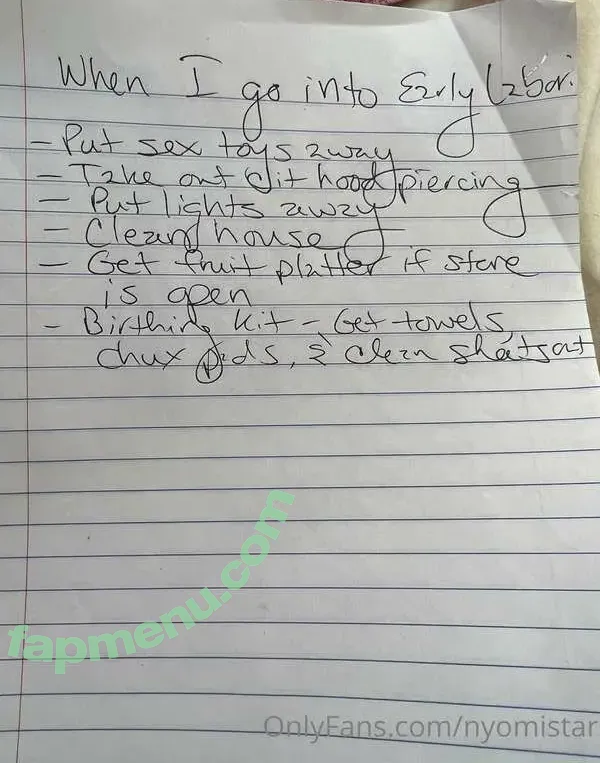 When I go into Early Labor:
- Put sex toys away
- Take out clit hood piercing
- Put lights away
- Clean house
- Get fruit platter if store
is open
- Birthing Kit - Get towels,
chux pads, & clean sheets out
fapmenu.com
OnlyFans.com/nyomistar